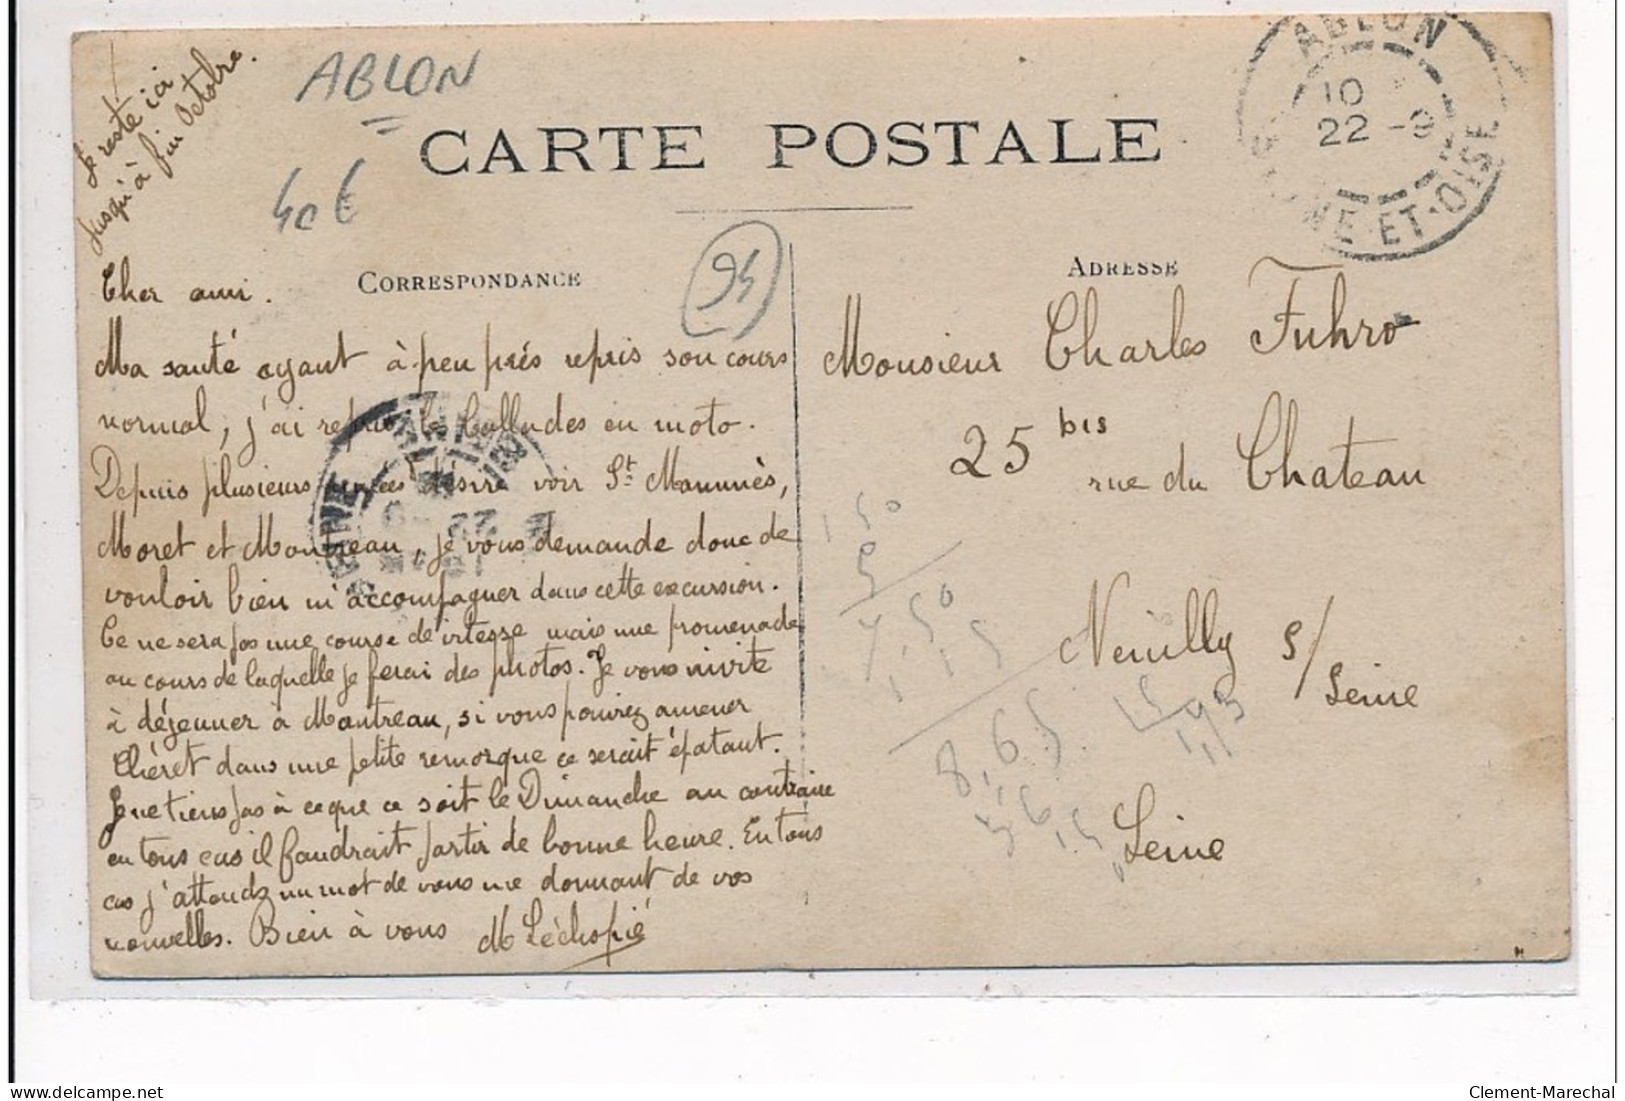 Je reste ici
jusqu'à fin Octobre.
ABLON
40€
CARTE POSTALE
ABLON
10
22 -9
SEINE-ET-OISE
CORRESPONDANCE
94
ADRESSE
Cher ami.
Ma santé ayant à peu près repris son cours
normal, j'ai repris les ballades en moto.
Depuis plusieurs désire voir St. Mammès,
Moret et Montreau, je vous demande donc de
vouloir bien m'accompagner dans cette excursion.
Ce ne sera pas une course de vitesse mais une promenade
au cours de laquelle je ferai des photos. Je vous invite
à déjeuner à Montreau, si vous pouviez amener
Chéret dans une petite remorque ce serait épatant.
Je ne tiens pas à ce que ce soit le Dimanche au contraire
en tous cas il faudrait partir de bonne heure. En tous
cas j'attends un mot de vous me donnant de vos
nouvelles. Bien à vous M Léchopié
Monsieur Charles Fuhro
25 bis rue du Chateau
Neuilly s/ Seine
Seine
1 50
5
7,50
1,15
8,65
15
1,95
Clement-Marechal